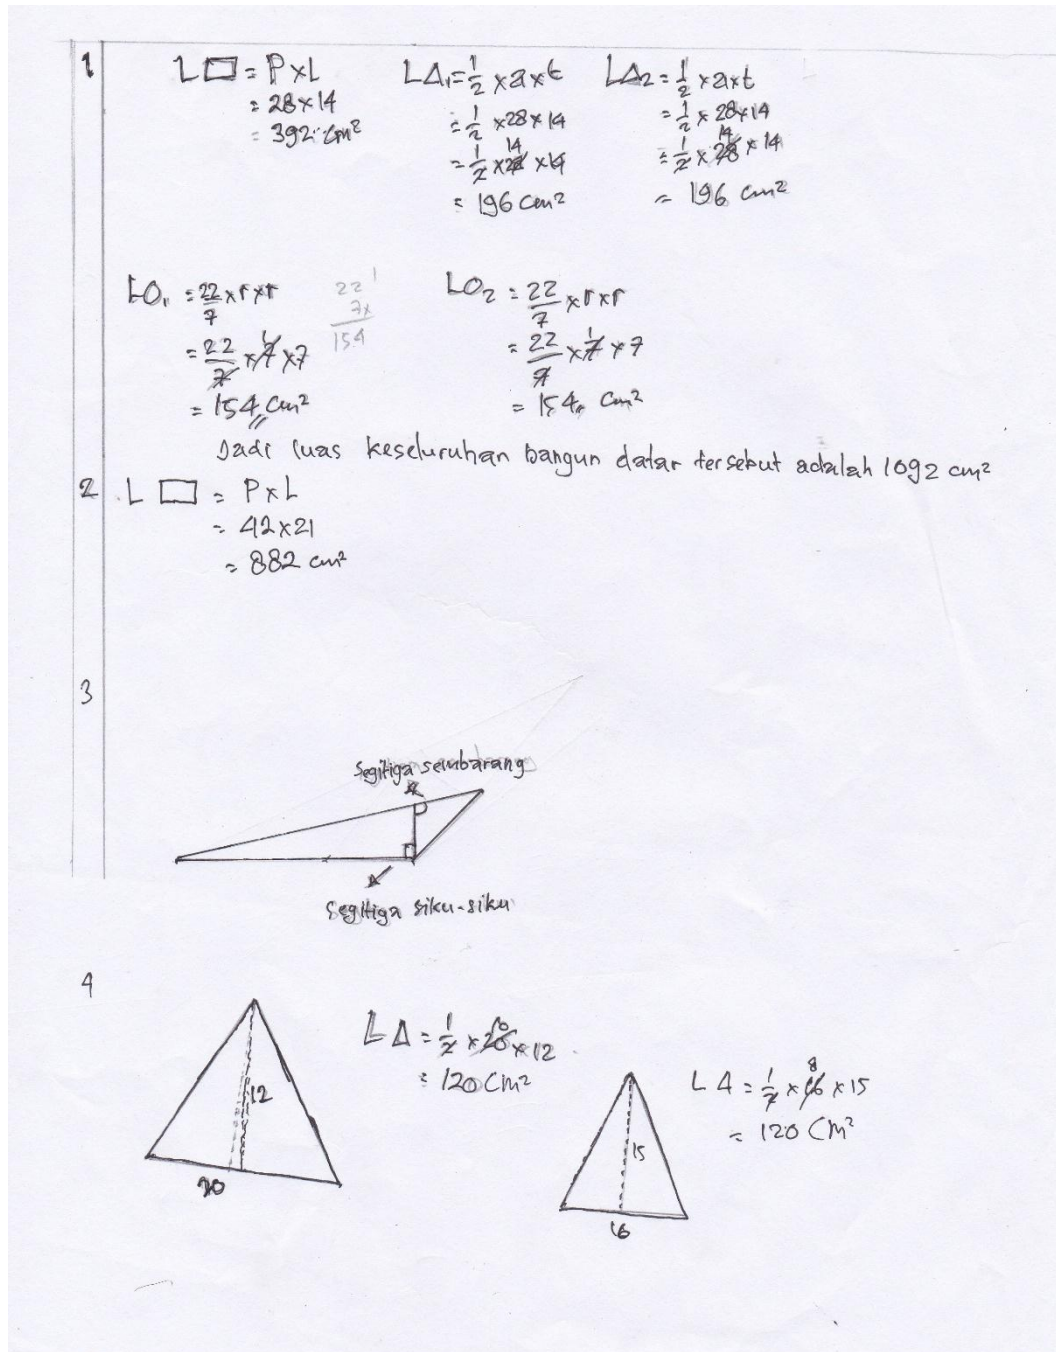 1
L□ = P×L
= 28×14
= 392 cm²
L∆₁ = 1/2 × a×t
= 1/2 × 28 × 14
= 1/2 × 28 14 × 14
= 196 cm²
L∆2 = 1/2 × a×t
= 1/2 × 28×14
= 1/2 × 28 14 × 14
= 196 cm²
LO₁ = 22/7 × r×r
= 22/7 × 7 1 × 7
= 154 cm²
22 1
7×
154
LO₂ = 22/7 × r×r
= 22/7 × 7 1 × 7
= 154 cm²
Jadi luas keseluruhan bangun datar tersebut adalah 1092 cm²
2 L □ = P×L
= 42×21
= 882 cm²
3
Segitiga sembarang
Segitiga siku-siku
4
12
20
L∆ = 1/2 × 20 10 × 12
= 120 Cm²
15
16
L∆ = 1/2 × 16 8 × 15
= 120 Cm²